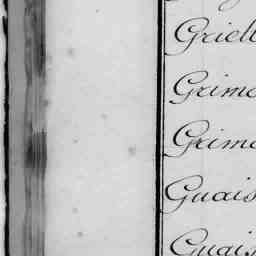 Griell
Grime
Grime
Guais
Guais